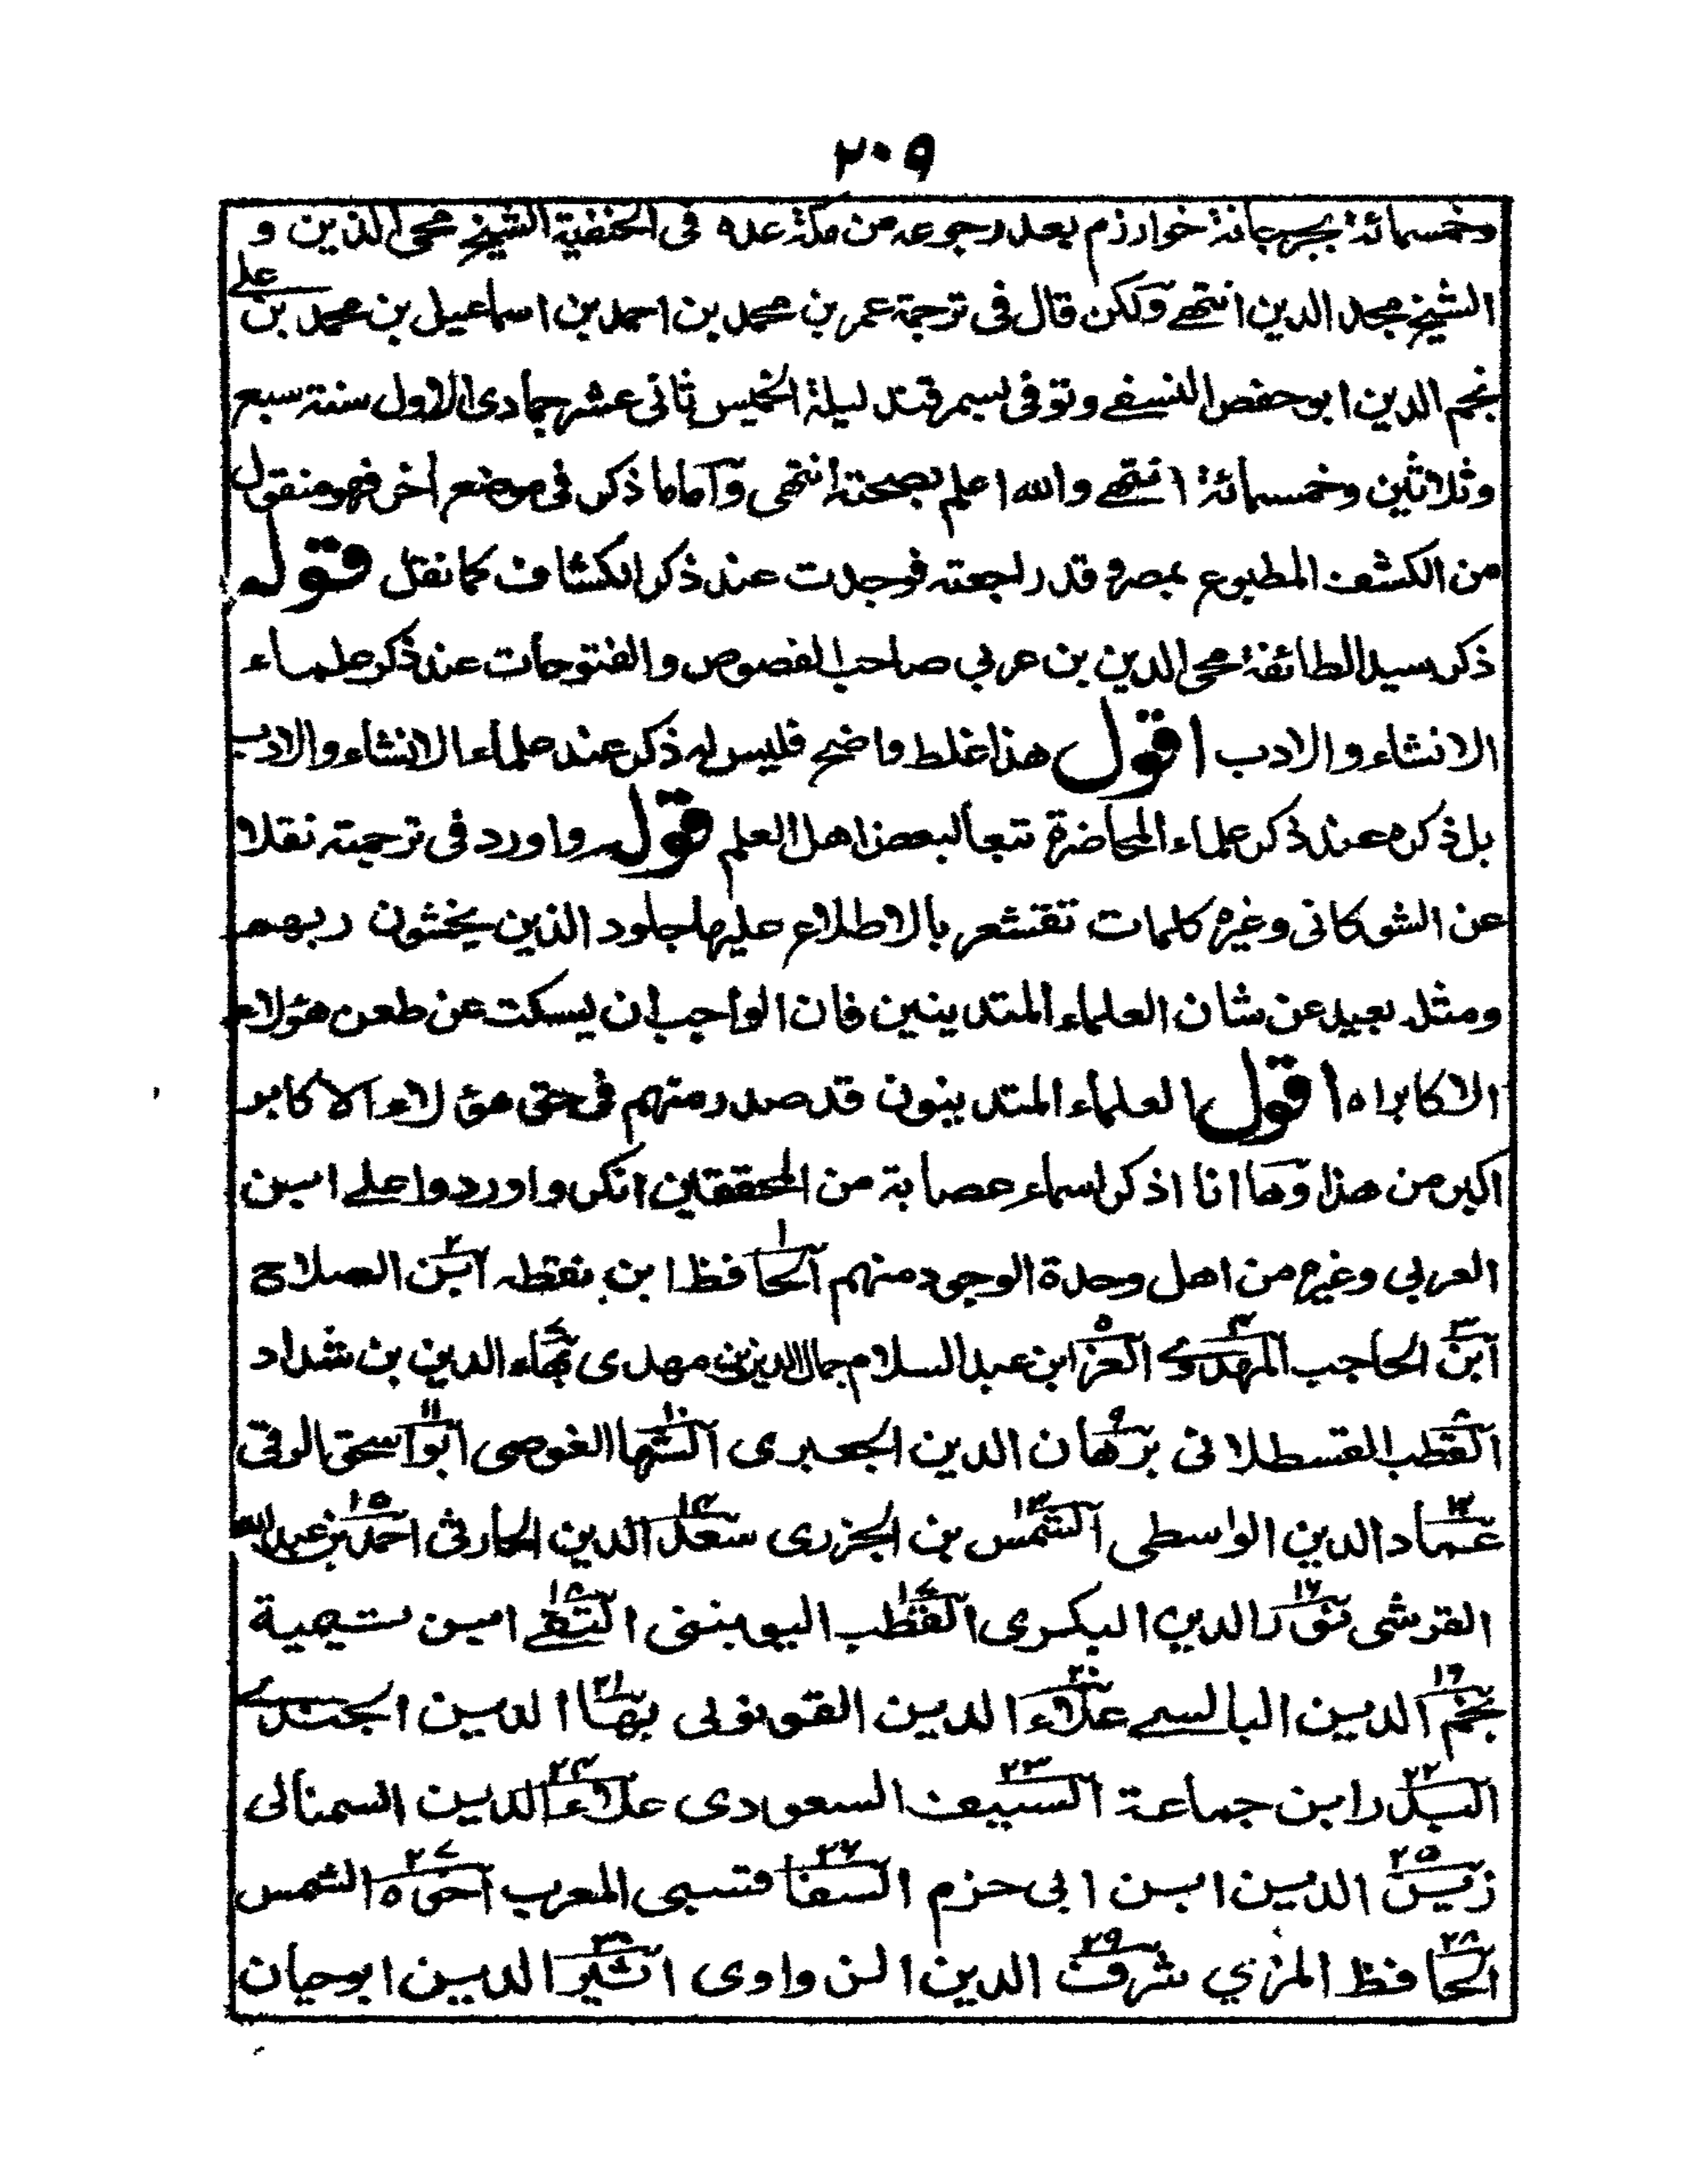 ٢٠٩
وخمسمائة بجرجانة خوارزم بعد رجوعه من مكة عده فى الحنفية الشيخ محى الدين و
الشيخ مجد الدين انتهے ولكن قال فى ترجمة عمر بن محمد بن احمد بن اسماعيل بن محمد بن علے
نجم الدين ابو حفص النسفے وتوفى بسمرقند ليلة الخميس ثانى عشر جمادى الاول سنة سبع
وثلاثين وخمسمائة انتهے والله اعلم بصحته انتهى واما ما ذكر فى موضع اخر فهو منقول
من الكشف المطبوع بمصر وقد راجعته فوجدت عند ذكر الكشاف كما نقل قوله
ذكر سيد الطائفة محى الدين بن عربي صاحب الفصوص والفتوحات عند ذكر علماء
الانشاء والادب اقول هذا غلط واضح فليس له ذكر عند علماء الانشاء والادب
بل ذكره عند ذكر علماء المحاضرة تبعا لبعض اهل العلم قوله واورد فى ترجمته نقلا
عن الشوكانى وغيره كلمات تقشعر بالاطلاع عليها جلود الذين يخشون ربهم
ومثله بعيد عن شان العلماء المتدينين فان الواجب ان يسكت عن طعن هؤلاء
الاكابر اه اقول العلماء المتدينون قد صدر منهم فى حق هؤلاء الاكابر
اكبر من هذا وها انا اذكر اسماء عصابة من المحققين انكروا وردوا على ابن
العربي وغيره من اهل وحدة الوجود منهم الحافظ ابن نقطه ابن الصلاح
ابن الحاجب المهدوے العز ابن عبد السلام جمال الدين بن مهدى بهاء الدين بن شداد
القطب القسطلانى برهان الدين الجعبرى الشهاا الغوصى ابو اسحق الرقى
عماد الدين الواسطى الشمس بن الجزرى سعد الدين الحارثى احمد بن عبد الله
القرشى نور الدين البكرى القطب اليوبننى التقے ابن تيمية
نجم الدين البالسے علاء الدين القونوى بهاا الدين الجندے
البدر ابن جماعة السيف السعودى علاء الدين السمنانى
زين الدين ابن ابى حزم السفاقسى المعرب اخوه الشمس
الحافظ المزي شرف الدين الزواوى اثير الدين ابوحيان